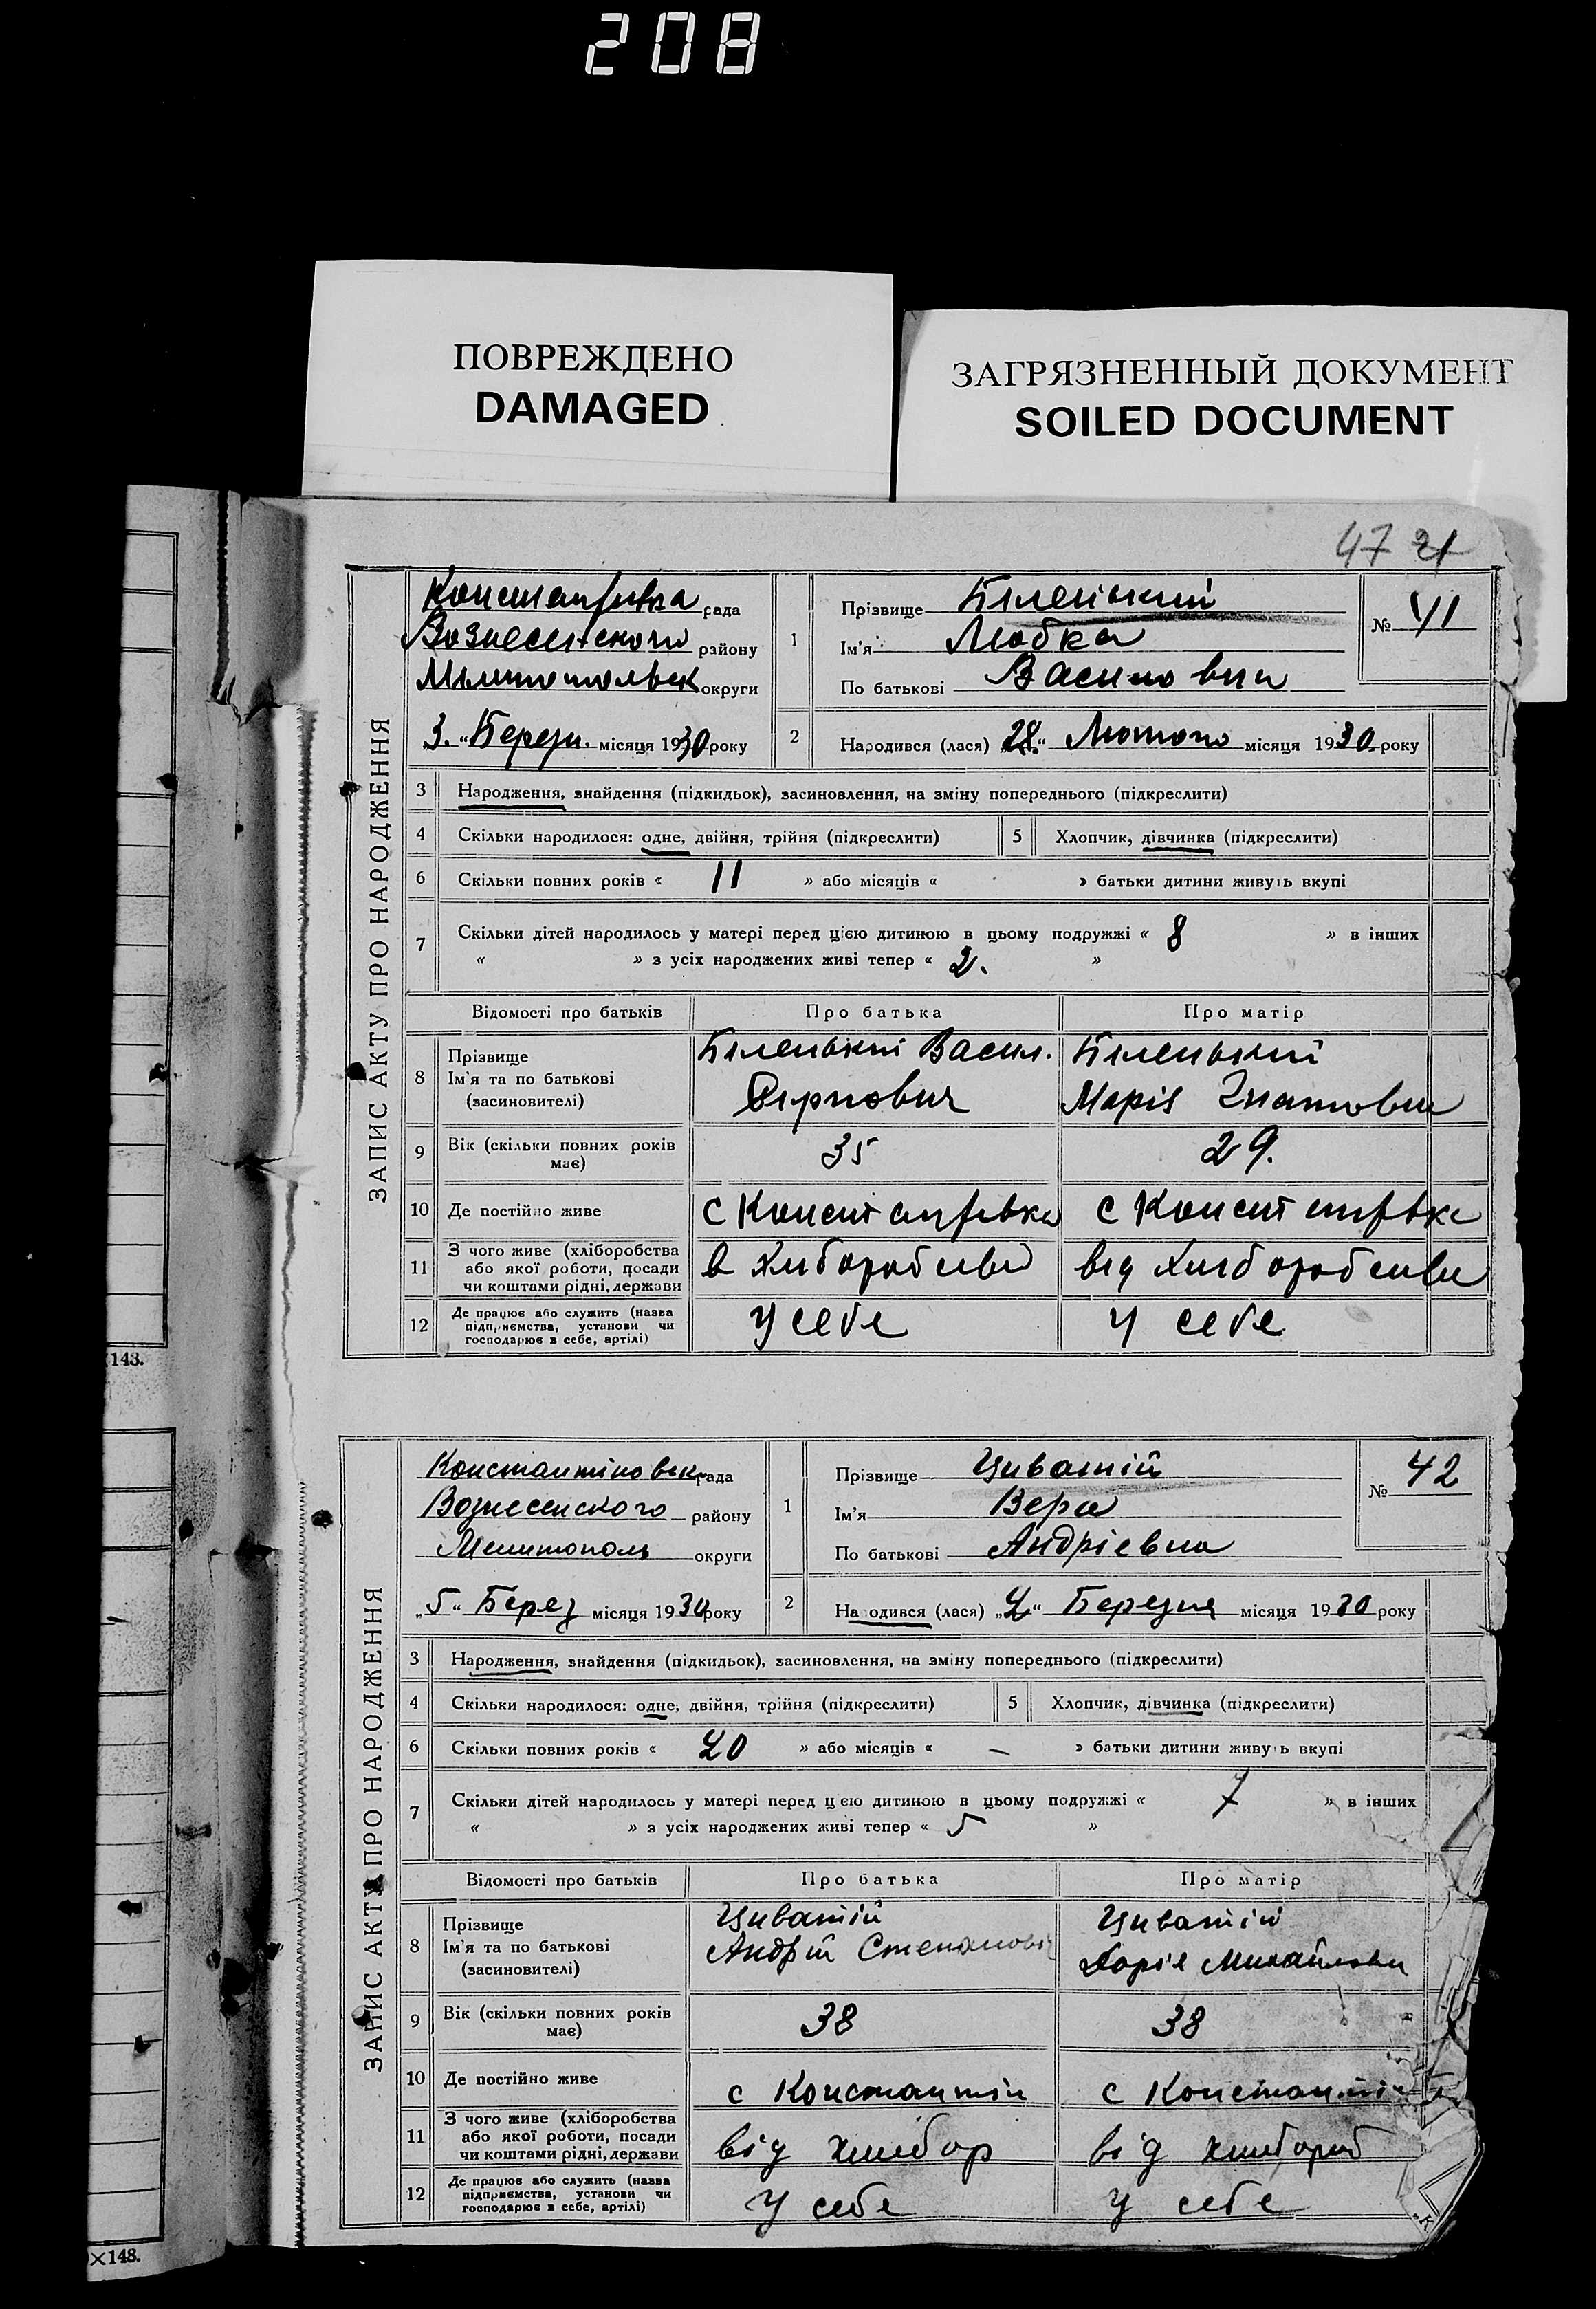 208
ПОВРЕЖДЕНО
DAMAGED
ЗАГРЯЗНЕННЫЙ ДОКУМЕНТ
SOILED DOCUMENT
47 21
ЗАПИС АКТУ ПРО НАРОДЖЕННЯ
рада
Вознесенського району
округи
3. "Березн. місяця 1930 року
1
Прізвище Біленький
Ім'я Любка
По батькові Василовна
№ 41
2
Народився (лася) 28." Лютого місяця 1930 року
3 Народження, знайдення (підкидьок), засиновлення, на зміну попереднього (підкреслити)
4 Скільки народилося: одне, двійня, трійня (підкреслити) 5 Хлопчик, дівчинка (підкреслити)
6 Скільки повних років « 11 » або місяців « » батьки дитини живуть вкупі
7 Скільки дітей народилось у матері перед цією дитиною в цьому подружжі « 8 » в інших
« » з усіх народжених живі тепер « 2. »
Відомості про батьків Про батька Про матір
8 Прізвище
Ім'я та по батькові
(засиновителі)
Біленький Васил.
Біленький
Марія
9 Вік (скільки повних років
має)
35 29.
10 Де постійно живе
11 З чого живе (хліборобства
або якої роботи, посади
чи коштами рідні, держави
12 Де працює або служить (назва
підприємства, установи чи
господарює в себе, артілі)
У себе У себе
143.
ЗАПИС АКТУ ПРО НАРОДЖЕННЯ
Константіновск рада
Вознесенского району
Мелитополь округи
„5" Берез місяця 1930 року
1
Прізвище Циватій
Ім'я Вера
По батькові Андріевна
№ 42
2
Народився (лася) „2" Березня місяця 1930 року
3 Народження, знайдення (підкидьок), засиновлення, на зміну попереднього (підкреслити)
4 Скільки народилося: одне, двійня, трійня (підкреслити) 5 Хлопчик, дівчинка (підкреслити)
6 Скільки повних років « 20 » або місяців « – » батьки дитини живуть вкупі
7 Скільки дітей народилось у матері перед цією дитиною в цьому подружжі « 7 » в інших
« » з усіх народжених живі тепер « 5 »
Відомості про батьків Про батька Про матір
8 Прізвище
Ім'я та по батькові
(засиновителі)
Циватій
Андрій Степанович
Циватій
Дарія Михайловн
9 Вік (скільки повних років
має)
38 38
10 Де постійно живе
с Константін с Константін
11 З чого живе (хліборобства
або якої роботи, посади
чи коштами рідні, держави
від хлібор від хлібороб
12 Де працює або служить (назва
підприємства, установи чи
господарює в себе, артілі)
У себе У себе
×148.